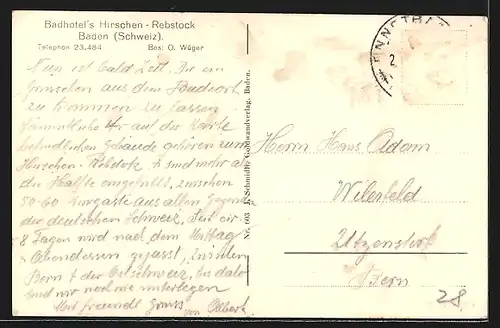 Badhotel's Hirschen - Rebstock
Baden (Schweiz).
Telephon 23.484 Bes: O. Wüger
Nun ist bald Zeit, Dir ein
aus dem Badeort
zu kommen zu lassen.
Sämmtliche 4 auf der Karte
befindlichen Gebäude gehören zum
Hirschen-Rebstock & sind mehr als
die Hälfte angefüllt, zwischen
50-60 Kurgäste aus allen Gegenden
der deutschen Schweiz. Seit ca.
8 Tagen wird nach dem Mittag
& Abendessen gejasst, zwischen
Bern & der Ostschweiz, bis dato
sind wir noch nie unterlegen
Mit freundl. Gruss
von Albert
Nr. 603 Goldwandverlag, Baden.
Herrn Hans Adam
Wilerfeld
Utzenstorf
Bern
28